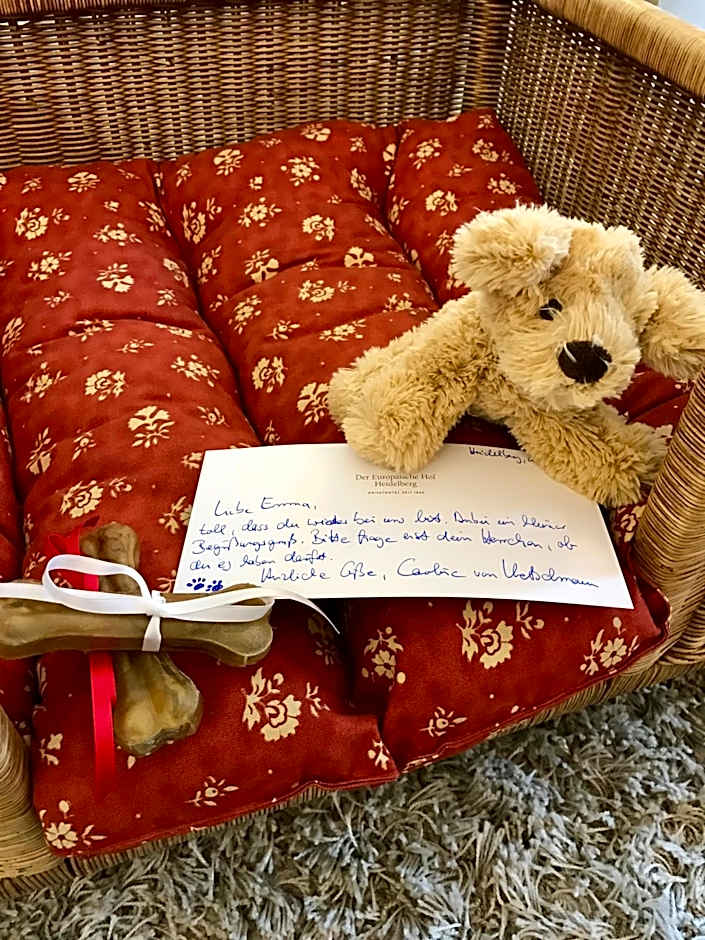 Heidelberg,
Der Europäische Hof
Heidelberg
PRIVATHOTEL SEIT 1865
Liebe Emma,
toll, dass du wieder bei uns bist. Anbei ein kleiner
Begrüßungsgruß. Bitte frage erst dein Herrchen, ob
du es haben darfst.
Herzliche Grüße, Caroline von